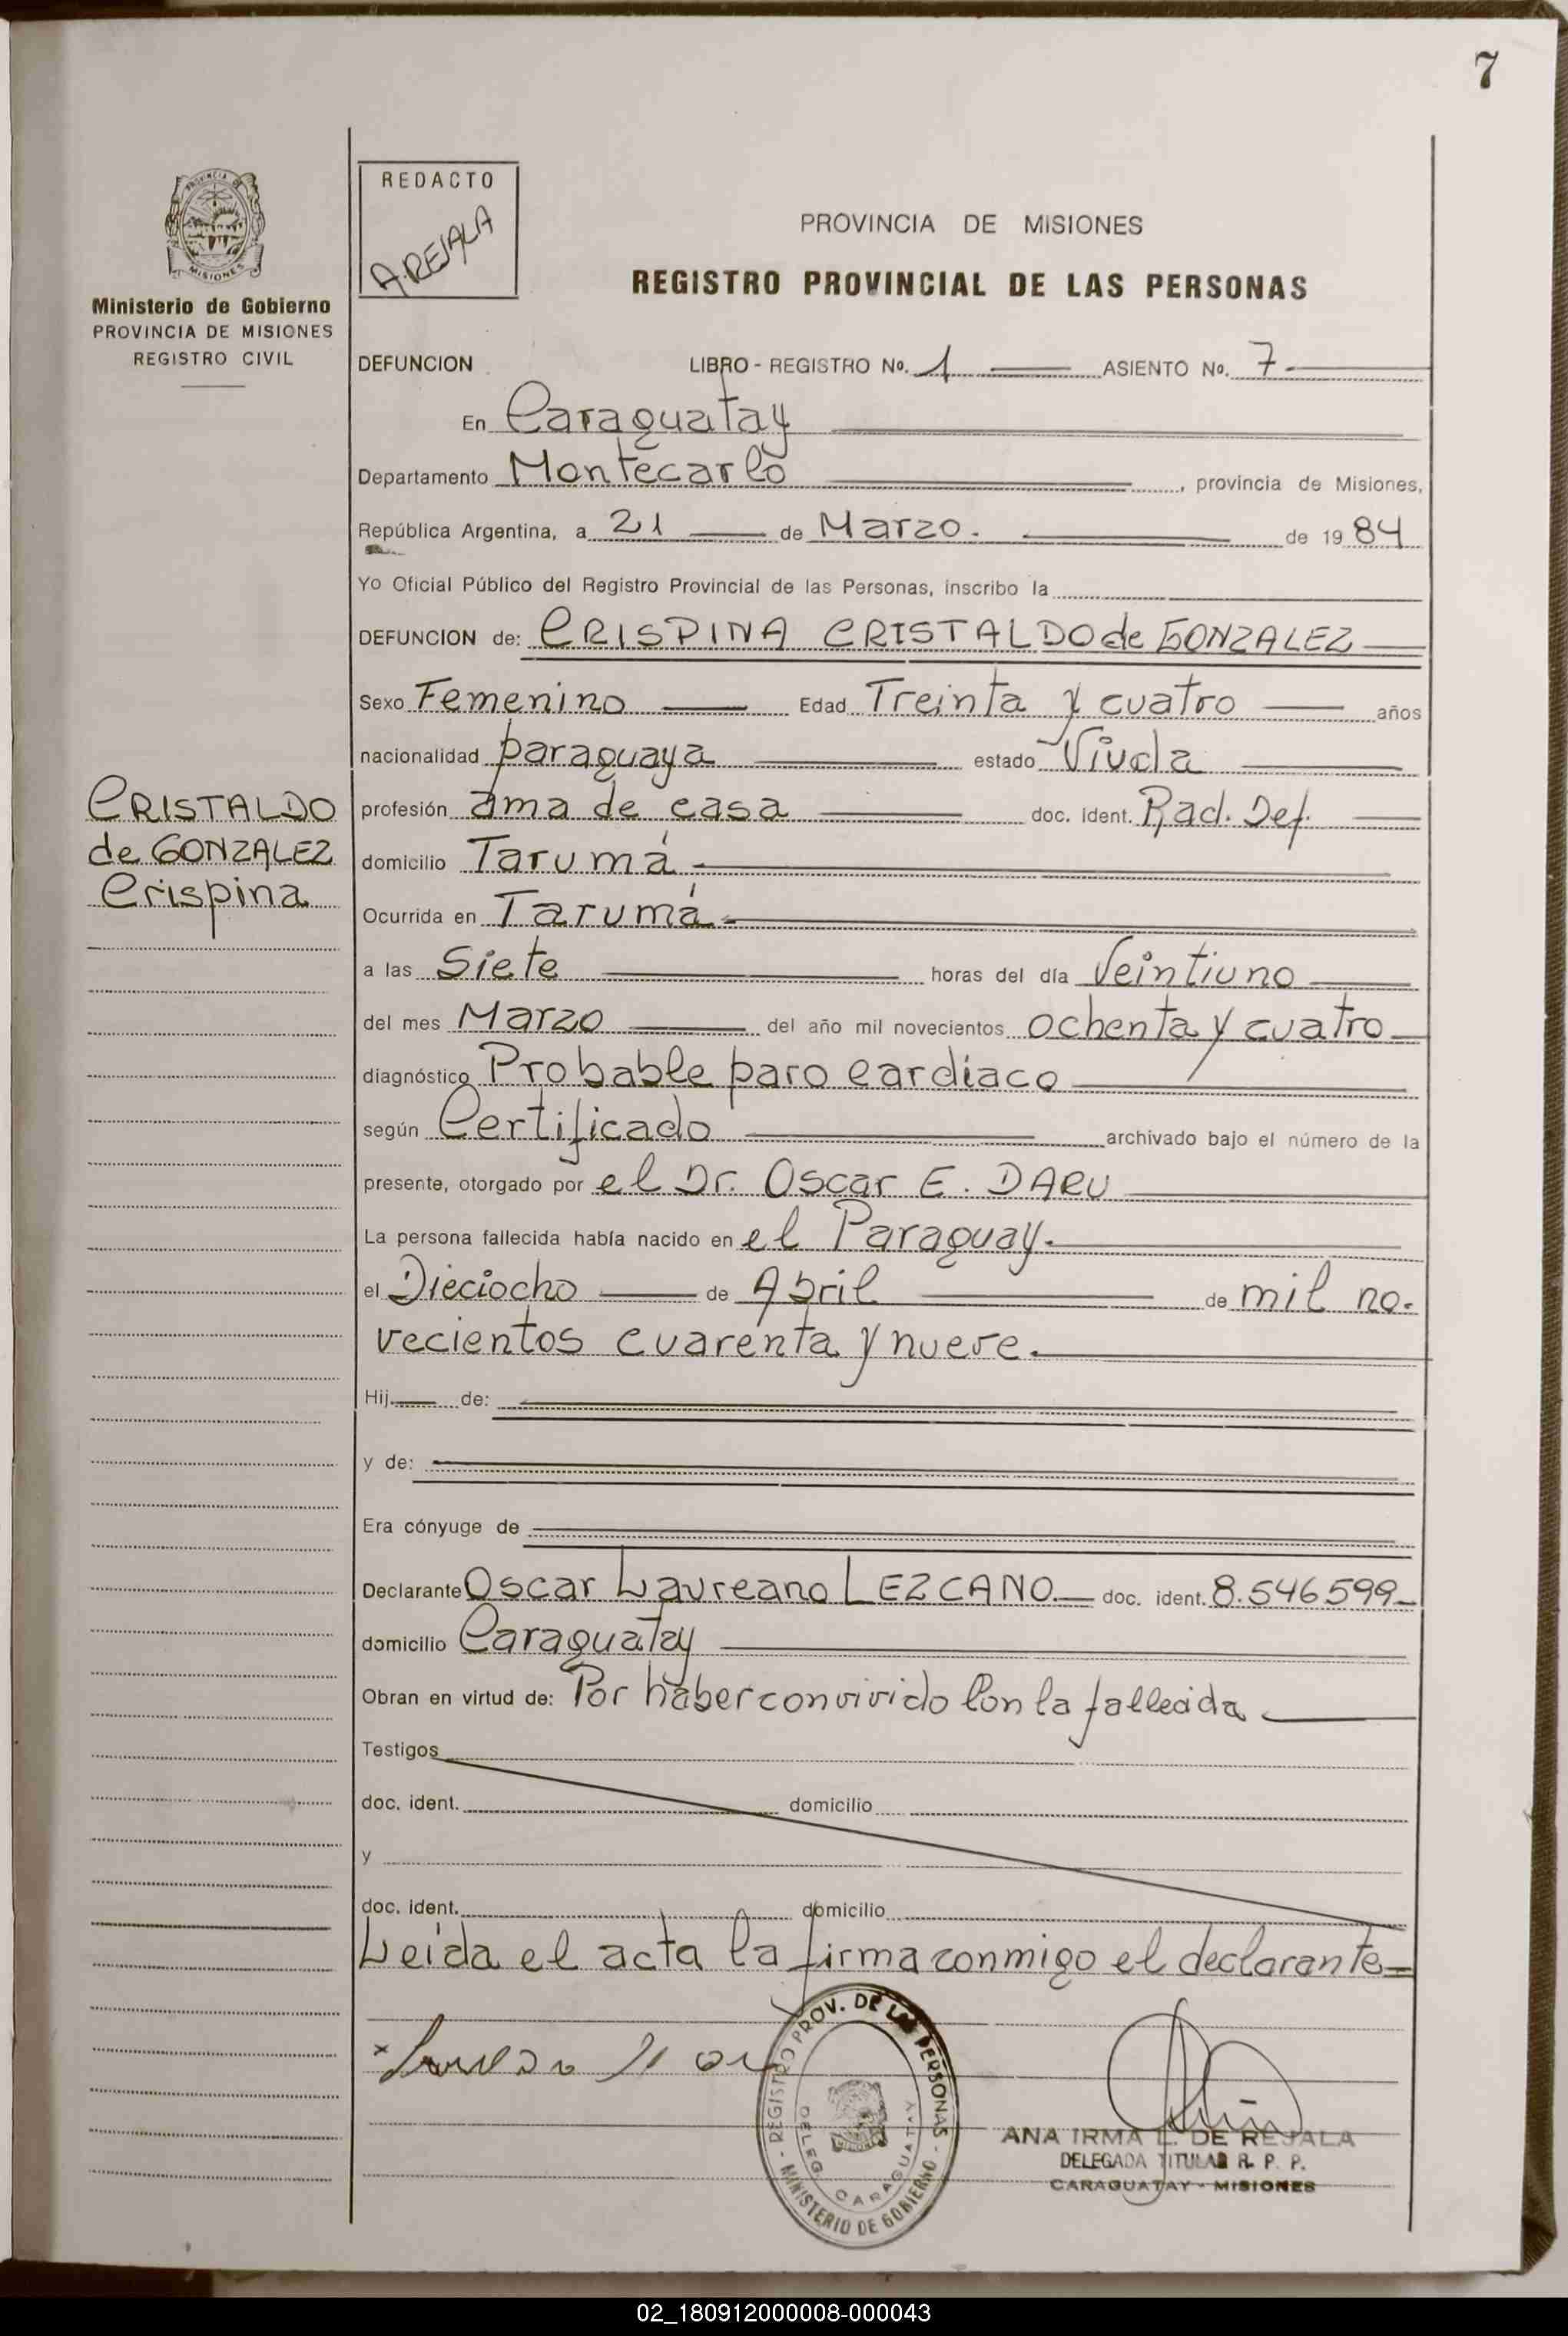 7
PROVINCIA DE
MISIONES
Ministerio de Gobierno
PROVINCIA DE MISIONES
REGISTRO CIVIL
REDACTO
A. REJALA
PROVINCIA DE MISIONES
REGISTRO PROVINCIAL DE LAS PERSONAS
DEFUNCION LIBRO - REGISTRO No. 1 ASIENTO No. 7
En Caraguatay
Departamento Montecarlo, provincia de Misiones,
República Argentina, a 21 de Marzo. de 1984
Yo Oficial Público del Registro Provincial de las Personas, inscribo la
DEFUNCION de: CRISPINA CRISTALDO de GONZALEZ
Sexo Femenino Edad Treinta y cuatro años
nacionalidad paraguaya estado Viuda
CRISTALDO
de GONZALEZ
Crispina
profesión ama de casa doc. ident. Rad. Def.
domicilio Tarumá
Ocurrida en Tarumá
a las Siete horas del día Veintiuno
del mes Marzo del año mil novecientos ochenta y cuatro
diagnóstico Probable paro cardiaco
según Certificado archivado bajo el número de la
presente, otorgado por el Dr. Oscar E. DARU
La persona fallecida había nacido en el Paraguay.
el Dieciocho de Abril de mil no-
vecientos cuarenta y nueve.
Hij de:
y de:
Era cónyuge de
Declarante Oscar Laureano LEZCANO doc. ident. 8.546599
domicilio Caraguatay
Obran en virtud de: Por haber convivido Con la fallecida
Testigos
doc. ident. domicilio
y
doc. ident. domicilio
Leída el acta la firma conmigo el declarante
- REGISTRO PROV. DE LAS PERSONAS -
MINISTERIO DE GOBIERNO
DELEG. CARAGUATAY
ANA IRMA L. DE REJALA
DELEGADA TITULAR R. P. P.
CARAGUATAY - MISIONES
02_180912000008-000043